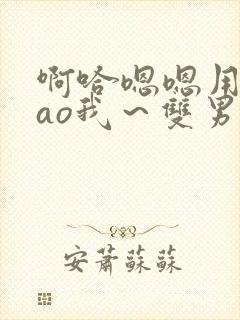 啊哈嗯嗯用
ao我~雙男
安蕭蘇蘇